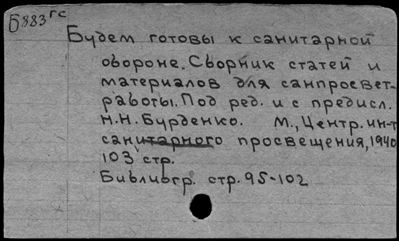 Б883гс
Будем готовы к санитарной
обороне. Сборник статей и
материалов для санпросвет-
работы. Под ред. и с предисл.
Н.Н. Бурденко. М., Центр. ин-т
санитарного просвещения, 1940
103 стр.
Библиогр. стр. 95-102